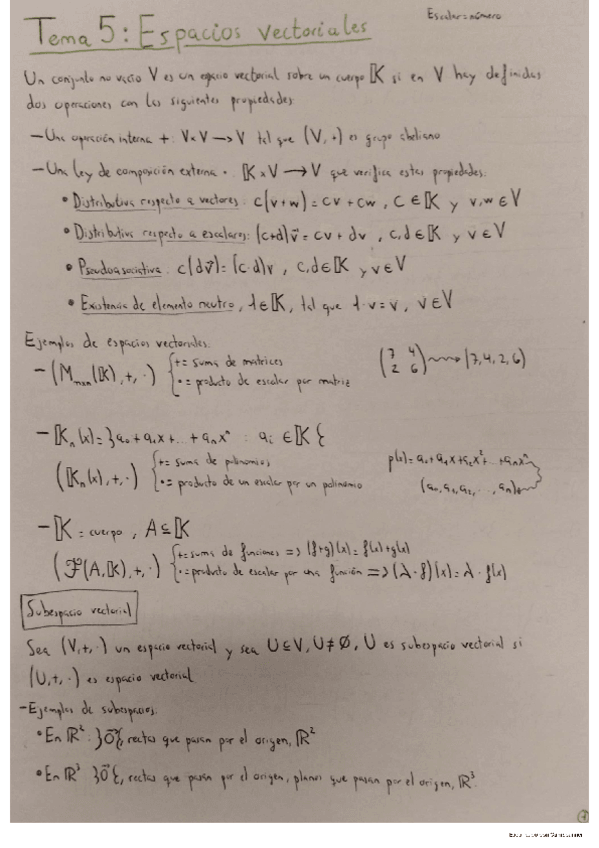 Escalar = número
Tema 5: Espacios vectoriales
Un conjunto no vacío V es un espacio vectorial sobre un cuerpo 𝕂 si en V hay definidas
dos operaciones con las siguientes propiedades:
- Una operación interna +: V×V → V tal que (V, +) es grupo abeliano
- Una ley de composición externa · : 𝕂×V → V que verifica estas propiedades:
• Distributiva respecto a vectores: c(v+w) = cv + cw, c ∈ 𝕂 y v,w ∈ V
• Distributiva respecto a escalares: (c+d)v⃗ = cv + dv, c,d ∈ 𝕂 y v ∈ V
• Pseudoasociativa: c(dv⃗) = (c·d)v, c,d ∈ 𝕂 y v ∈ V
• Existencia de elemento neutro, 1 ∈ 𝕂, tal que 1·v = v, v ∈ V
Ejemplos de espacios vectoriales:
- (Mmxn(𝕂), +, ·) { + = suma de matrices
· = producto de escalar por matriz
(7 4
2 6) ⇝ (7, 4, 2, 6)
- 𝕂n(x) = }a₀ + a₁x + ... + aₙxⁿ : aᵢ ∈ 𝕂{
(𝕂n(x), +, ·) { + = suma de polinomios
· = producto de un escalar por un polinomio
p(x) = a₀ + a₁x + a₂x² + ... + aₙxⁿ
(a₀, a₁, a₂, ..., aₙ)
- 𝕂 = cuerpo, A ⊆ 𝕂
(ℱ(A, 𝕂), +, ·) { + = suma de funciones => (f+g)(x) = f(x) + g(x)
· = producto de escalar por una función => (λ·f)(x) = λ·f(x)
Subespacio vectorial
Sea (V, +, ·) un espacio vectorial y sea U ⊆ V, U ≠ ∅, U es subespacio vectorial si
(U, +, ·) es espacio vectorial
- Ejemplos de subespacios:
• En ℝ²: }0⃗{, rectas que pasan por el origen, ℝ²
• En ℝ³ }0⃗{, rectas que pasan por el origen, planos que pasan por el origen, ℝ³.
1